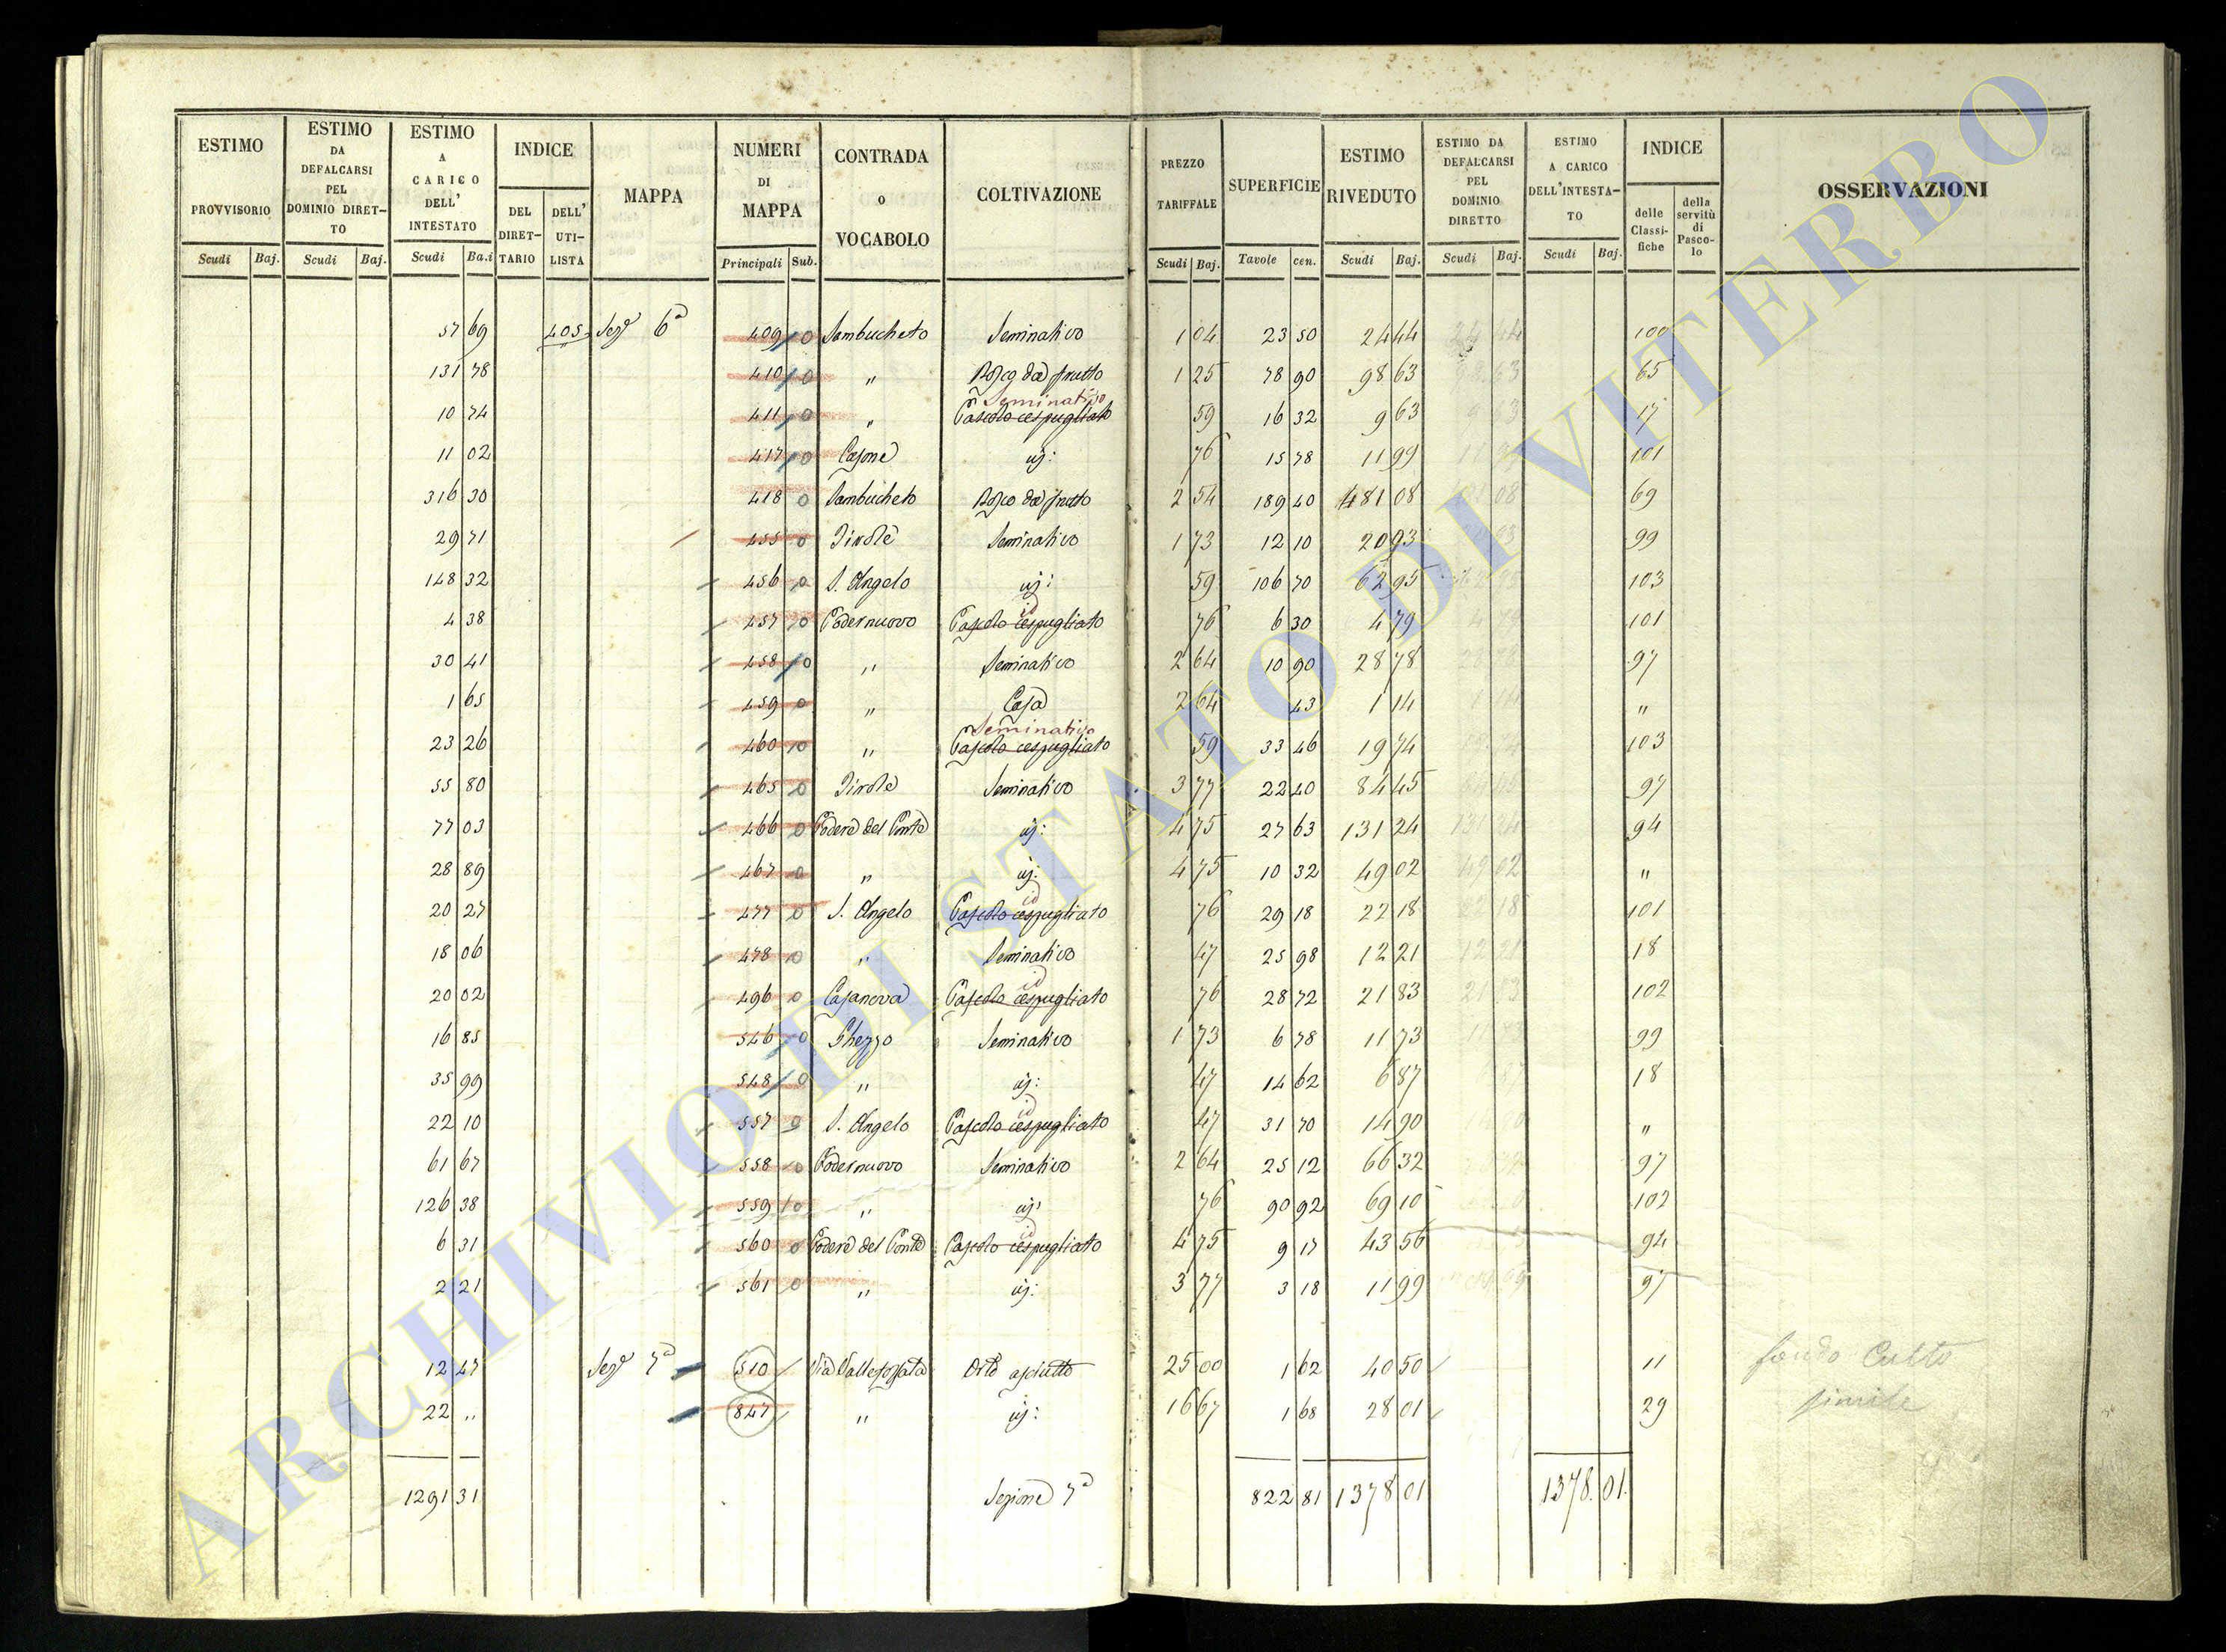 ESTIMO PROVVISORIO Scudi Baj.
ESTIMO DA DEFALCARSI PEL DOMINIO DIRETTO Scudi Baj.
ESTIMO A CARICO DELL' INTESTATO Scudi Ba.i
INDICE DEL DIRETTARIO DELL' UTILISTA
MAPPA
NUMERI DI MAPPA Principali Sub.
CONTRADA o VOCABOLO
COLTIVAZIONE
PREZZO TARIFFALE Scudi Baj.
SUPERFICIE Tavole cen.
ESTIMO RIVEDUTO Scudi Baj.
ESTIMO DA DEFALCARSI PEL DOMINIO DIRETTO Scudi Baj.
ESTIMO A CARICO DELL'INTESTATO Scudi Baj.
INDICE delle Classifiche della servitù di Pascolo
OSSERVAZIONI
57 69 405 Sezе 6a 409 0 Sambucheto Seminativo 1 04 23 50 24 44 24 44 100
131 78 410 0 " Bosco da frutto 1 25 78 90 98 63 65
10 74 411 0 " Seminativo Pascolo cespugliato 59 16 32 9 63 17
11 02 417 0 Casone id: 76 15 78 11 99 101
316 30 418 0 Sambucheto Bosco da frutto 2 54 189 40 481 08 69
29 71 455 0 Seminativo 1 73 12 10 20 93 99
148 32 456 0 S. Angelo id: 59 106 70 62 95 103
4 38 457 0 Podernuovo id Pascolo cespugliato 76 6 30 4 79 101
30 41 458 0 " Seminativo 2 64 10 90 28 78 97
1 65 459 0 " Casa 2 64 43 1 14 "
23 26 460 0 " Seminativo Pascolo cespugliato 59 33 46 19 74 103
55 80 465 0 Seminativo 3 77 22 40 84 45 97
77 03 466 0 Podere del Conte id: 4 75 27 63 131 24 131 24 94
28 89 467 0 " id: 4 75 10 32 49 02 49 02 "
20 27 477 0 S. Angelo id Pascolo cespugliato 76 29 18 22 18 22 18 101
18 06 478 0 " Seminativo 47 25 98 12 21 12 21 18
20 02 496 0 Casanova id Pascolo cespugliato 76 28 72 21 83 21 83 102
16 85 546 0 Ghezzo Seminativo 1 73 6 78 11 73 99
35 99 548 0 " id: 47 14 62 6 87 18
22 10 557 0 S. Angelo id Pascolo cespugliato 47 31 70 14 90 "
61 67 558 0 Podernuovo Seminativo 2 64 25 12 66 32 97
126 38 559 0 " id: 76 90 92 69 10 102
6 31 560 0 Podere del Conte id Pascolo cespugliato 4 75 9 17 43 56 94
2 21 561 0 " id: 3 77 3 18 11 99 97
12 47 7a 510 Via Orto asciutto 25 00 1 62 40 50 11 fondo Culto
22 " 847 " id: 16 67 1 68 28 01 29 simile
1291 31 Sezione 7a 822 81 1378 01 1378.01.
ARCHIVIO DI STATO DI VITERBO